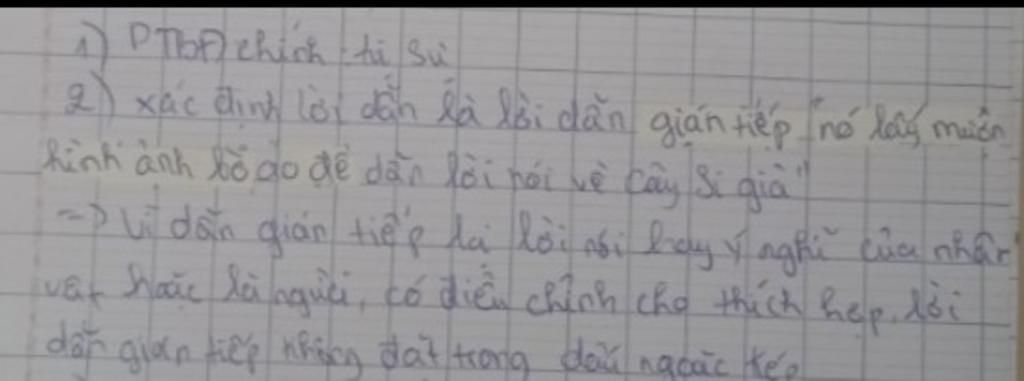 1) PTBĐ chính: tự sự
2) xác định lời dẫn là lời dẫn gián tiếp "nó lấy muôn
hình ảnh đồ để dẫn lời nói về cây si già"
=> Vì dẫn gián tiếp là lời nói hay ý nghĩ của nhân
vật hoặc là người, có điều chỉnh cho thích hợp. lời
dẫn gián tiếp không đặt trong dấu ngoặc kép